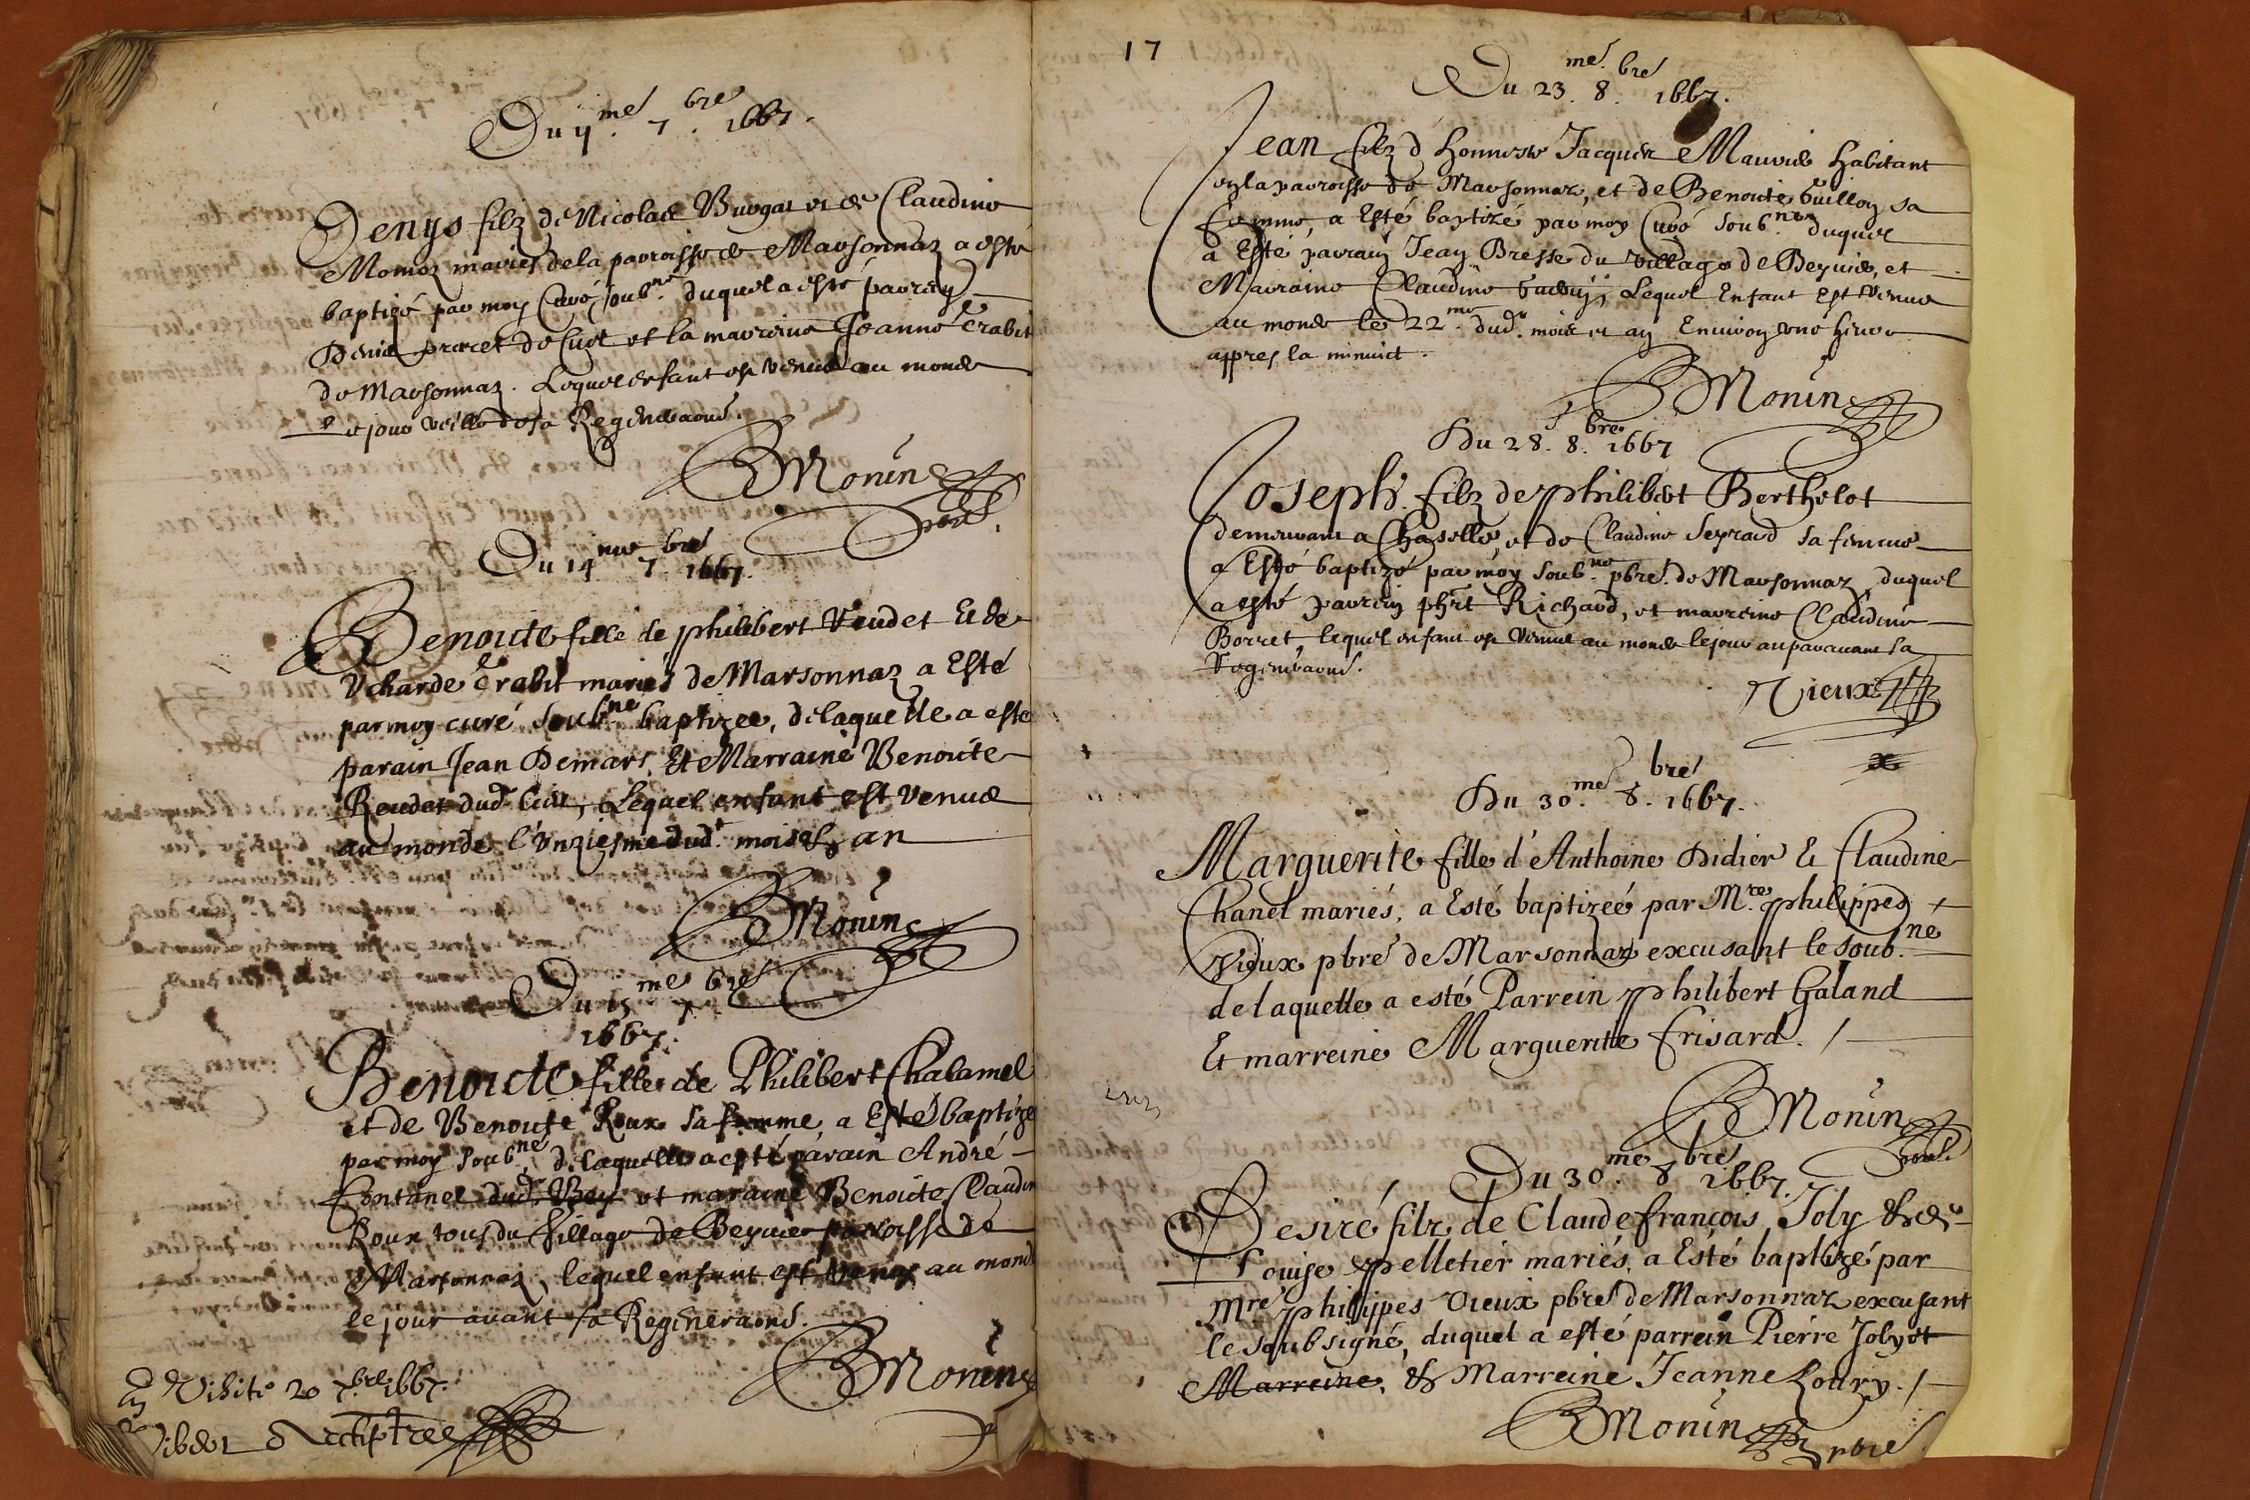 Du 4.me 7.bre 1667.
Denys filz de Nicolas Burgat et de Claudine
Momoz mariés de la parroisse de Marsonnaz a esté
baptizé par moy Curé soub.né duquel a esté parrein
Denis de et la marreine Jeanne Trabit
de Marsonnaz. Lequel enfant est venu au monde
le jour veille de sa Regeneraon.
BMonin
pbre.
Du 14.me 7.bre 1667.
Benoite fille de philibert Veudet Et de
Trabit mariés de Marsonnaz a Esté
par moy curé soub.né baptizee, de laquelle a esté
parain Jean Demars, Et Marraine Benoite
Reudet dud. lieu, Lequel enfant est venue
au monde l'unziesme dud.t mois & an
BMonin
Du 15.me 7.bre
1667.
Benoicte fille de Philibert Chalamel
et de Benoite Roux sa femme, a Esté baptize
par moy soub.né, de laquelle a esté parain André
Fontanel dud. Bey et maraine Benoite Claudin
Roux tous du Village de Beyvier parroisse de
Marsonnaz, lequel enfant est venus au monde
le jour avant sa Regeneraond.
BMonin
Visite 20 7.bre 1667.
17
Du 23.me 8.bre 1667.
Jean filz d'honneste Jacques Mauvis habitant
en la parroisse de Marsonnaz, et de Benoite Guillon sa
femme, a Esté baptizé par moy Curé soub.né duquel
a Esté parrain Jean Bresse du village de Beyvie, et
Marraine Claudine Lequel Enfant Est venu
au monde le 22.me dud. mois et an Environ une heure
appres la minuict.
BMonin
Du 28. 8.bre 1667
Joseph filz de philibert Berthelot
demeurant a Chaselle, et de Claudine Seyraud sa femme
a Esté baptizé par moy soub.né pbre. de Marsonnaz, duquel
a esté parrein phrt Richard, et marreine Claudine
Borret, lequel enfant est venu au monde le jour auparavant sa
regeneraond.
Vieux
Du 30.me 8.bre 1667.
Marguerite fille d'Anthoine Didier & Claudine
Chanel mariés, a Esté baptizeé par M.re philippes
Vieux pbre de Marsonnaz excusant le soub.né
de laquelle a esté Parrein philibert Galand
Et marreine Marguerite Frisard. /
BMonin
pbre.
Du 30.me 8.bre 1667.
Desiré filz de Claude françois Joly & de
Louise pelletier mariés, a Esté baptizé par
Mre philippes Vieux pbre de Marsonnaz excusant
le soubsigné, duquel a esté parrein Pierre Jolyot
Marreine, & Marreine Jeanne Loury. /
BMonin pbre